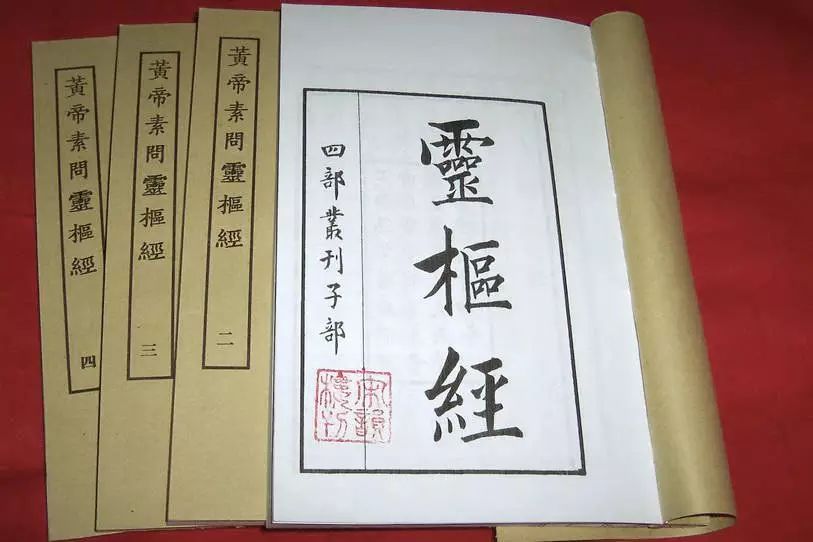 靈樞經
四部叢刊子部
黃帝素問靈樞經
二
黃帝素問靈樞經
三
黃帝素問靈樞經
四